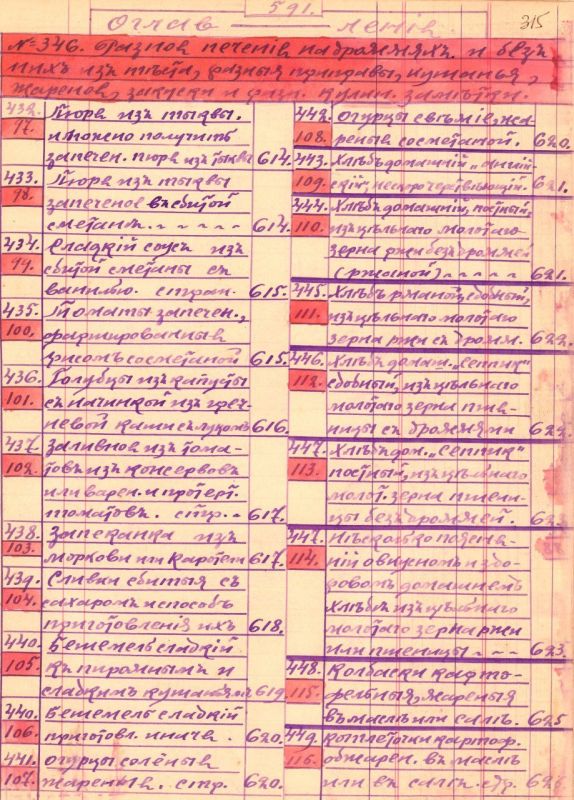 591.
315
Оглав ленiе
№346. Разное печенiе на дрожжахъ и безъ
нихъ изъ тѣста, разныя приправы, кушанья,
жареное, закуски и разн. кулин. замѣтки.
432. Пюре изъ тыквы.
97. и можно получить
запечен. пюре изъ тыквы 614.
433. Пюре изъ тыквы
98. запеченое въ сбитой
сметанѣ. - - - - - 614.
434. Сладкiй соусъ изъ
99. сбитой сметаны съ
ванилью. стран. 615.
435. Томаты запечен.,
100. фаршированныя
рисомъ со сметаной 615.
436. Голубцы изъ капусты
101. съ начинкой изъ греч-
невой каши съ лукомъ 616.
437. Заливное изъ тома-
102. товъ изъ консервовъ
или варен. и протерт.
томатовъ. стр. - 617.
438. Запеканка изъ
103. моркови или картоф. 617.
439. Сливки сбитыя съ
104. сахаромъ и способъ
приготовленiя ихъ 618.
440. Бешемель сладкiй
105. къ пирожнымъ и
сладкимъ кушаньям 619
440. Бешемель сладкiй
106. приготовл. иначе. 620.
441. Огурцы солёные
107. жареные. стр. 620.
442. Огурцы свѣжiе, жа-
108. реные со сметаной. 620.
443. Хлѣбъ домашнiй „англiй-
109. скiй", нескоро черствѣющiй. 621.
444. Хлѣбъ домашнiй, постный,
110. изъ цѣльнаго молотаго
зерна ржи безъ дрожжей
(ржаной) - - - - 621.
445. Хлѣбъ ржаной, сдобный,
111. изъ цѣльнаго молотаго
зерна ржи съ дрожж. 622.
446. Хлѣбъ домаш. „Септик"
112. сдобный, изъ цѣльнаго
молотаго зерна пше-
ницы съ дрожжами 622.
447. Хлѣбъ дом. „Септик"
113. постный, изъ цѣльнаго
молот. зерна пшени-
цы безъ дрожжей.
447. Нѣсколько поясне-
114. нiй о вкусномъ и здо-
ровомъ домашнемъ
хлѣбѣ изъ цѣльнаго
молотаго зерна ржи
или пшеницы - - - 623.
448. Колбаски карто-
115. фельныя, жареныя
въ маслѣ или салѣ. 625
449. Котлеточки картоф.
116. обжарен. въ маслѣ
или въ салѣ. стр.